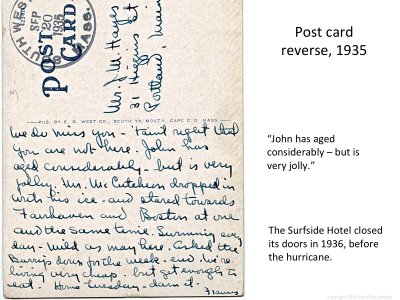 Post card
reverse, 1935
SOUTH WEST
SEP
20
1935
MASS.
POST
CARD.
Mr. J. M. Hayes
31 Higgins St
Portland, Maine
PUB. BY E. D. WEST CO., SOUTH YARMOUTH, CAPE COD, MASS.
We do miss you - 'Taint right that
you are not here. John has
aged considerably - but is very
jolly. Mr. McCutcheon dropped in
with his ice - and stared towards
Fairhaven and Boston at one
and the same time. Swimming every
day - mild as may here. Asked the
Burrips down for the week-end. We're
living very cheap. but get enough to
eat. Home Tuesday - darn it.
Frances
“John has aged
considerably – but is
very jolly.”
The Surfside Hotel closed
its doors in 1936, before
the hurricane.